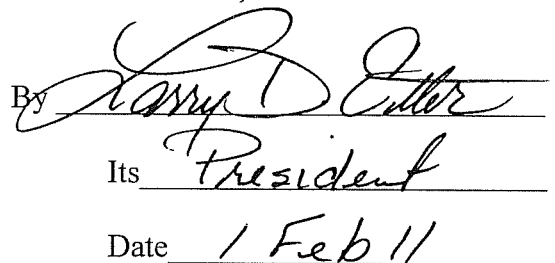 By Larry D
Its President
Date 1 Feb 11